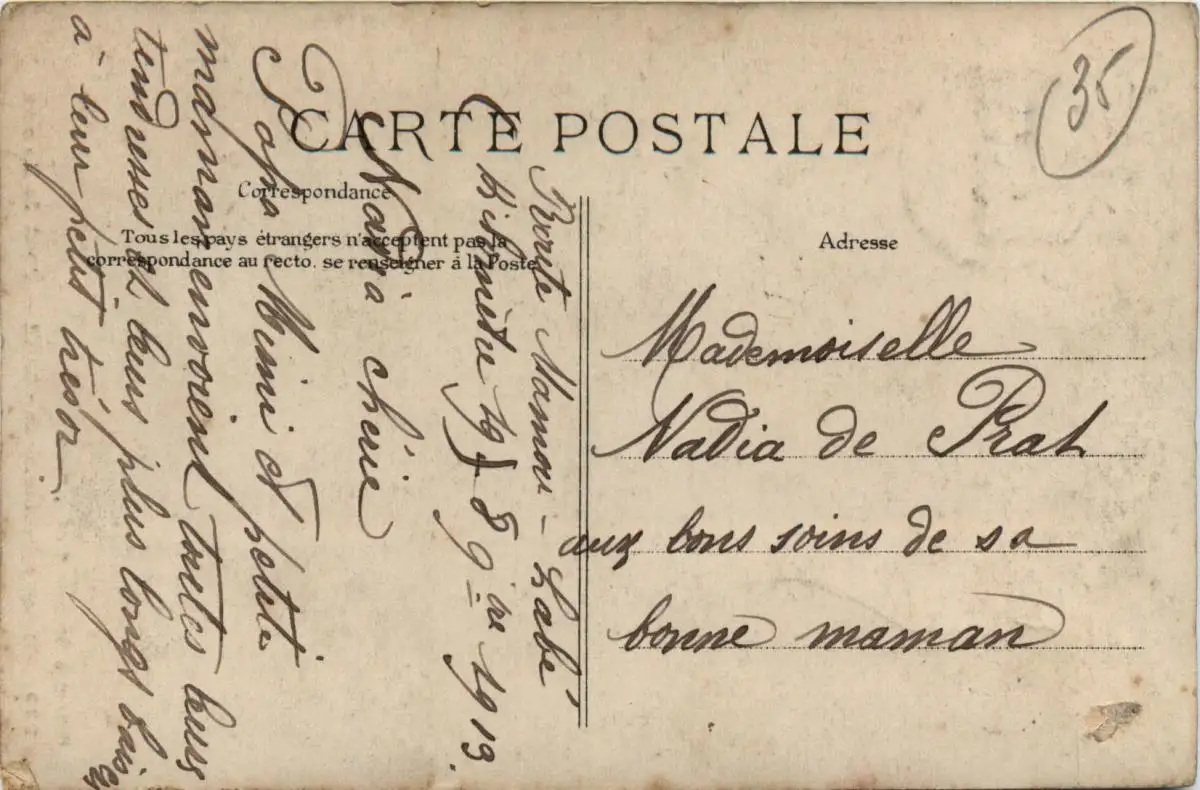 35
CARTE POSTALE
Correspondance
Tous les pays étrangers n'acceptent pas la
correspondance au recto. se renseigner à la Poste
Adresse
Mademoiselle
Nadia de Prat
aux bons soins de sa
bonne maman
Route Mamou - Labé
8 9bre 1913.
Nadia chérie
Papa Mimi et petite
maman envoient toutes leurs
tendresses et leurs plus longs baisers
à leur petit trésor.